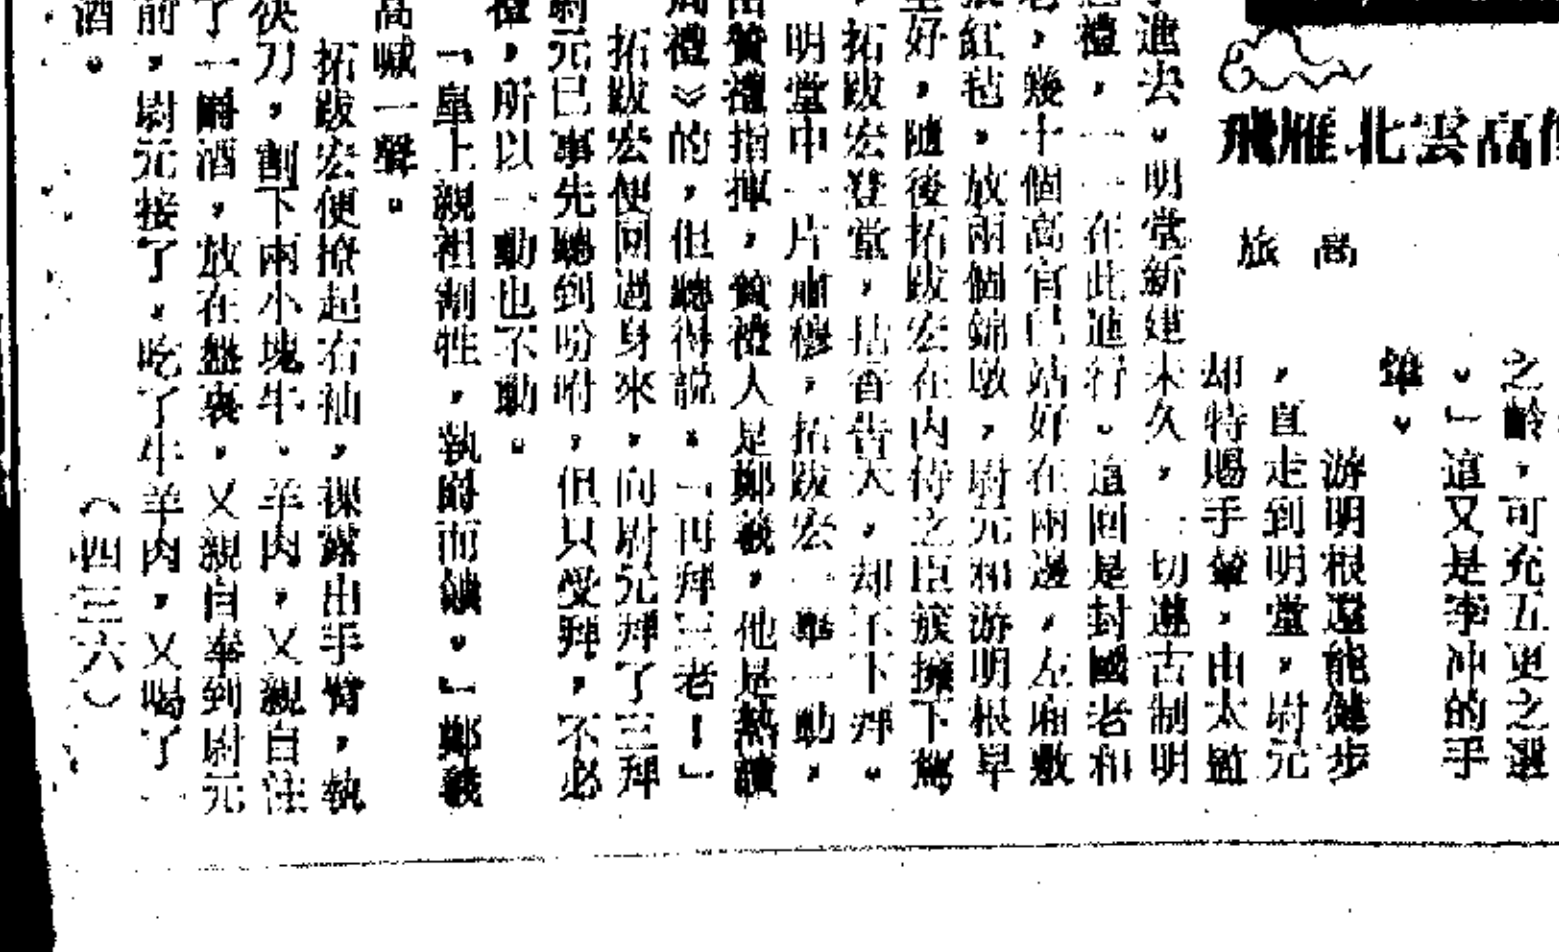 飛雁北雲高
旅高
之齡，可充五更之選
。」這又是李冲的手
筆。
游明根還能健步
，直走到明堂，尉元
却特賜手輦，由太監
進去。明堂新建未久，一切遵古制明
禮，一一在此進行。這回是封國老和
，幾十個高官已站好在兩邊，左廂敷
紅毡，放兩個錦墩，尉元和游明根早
好，隨後拓跋宏在內侍之臣簇擁下駕
，拓跋宏登堂，拈香告天，却不下拜。
明堂中一片肅穆，拓跋宏一舉一動，
贊禮指揮，贊禮人是鄭羲，他是熟讀
禮》的，但聽得説：「再拜三老！」
拓跋宏便回過身來，向尉元拜了三拜
尉元已事先聽到吩咐，但只受拜，不必
禮，所以一動也不動。
「皇上親袒割牲，執爵而饋。」鄭羲
高喊一聲。
拓跋宏便撩起右袖，裸露出手臂，執
快刀，割下兩小塊牛、羊肉，又親自注
了一爵酒，放在盤裏，又親自奉到尉元
前，尉元接了，吃了牛羊肉，又喝了
酒。
（四三六）